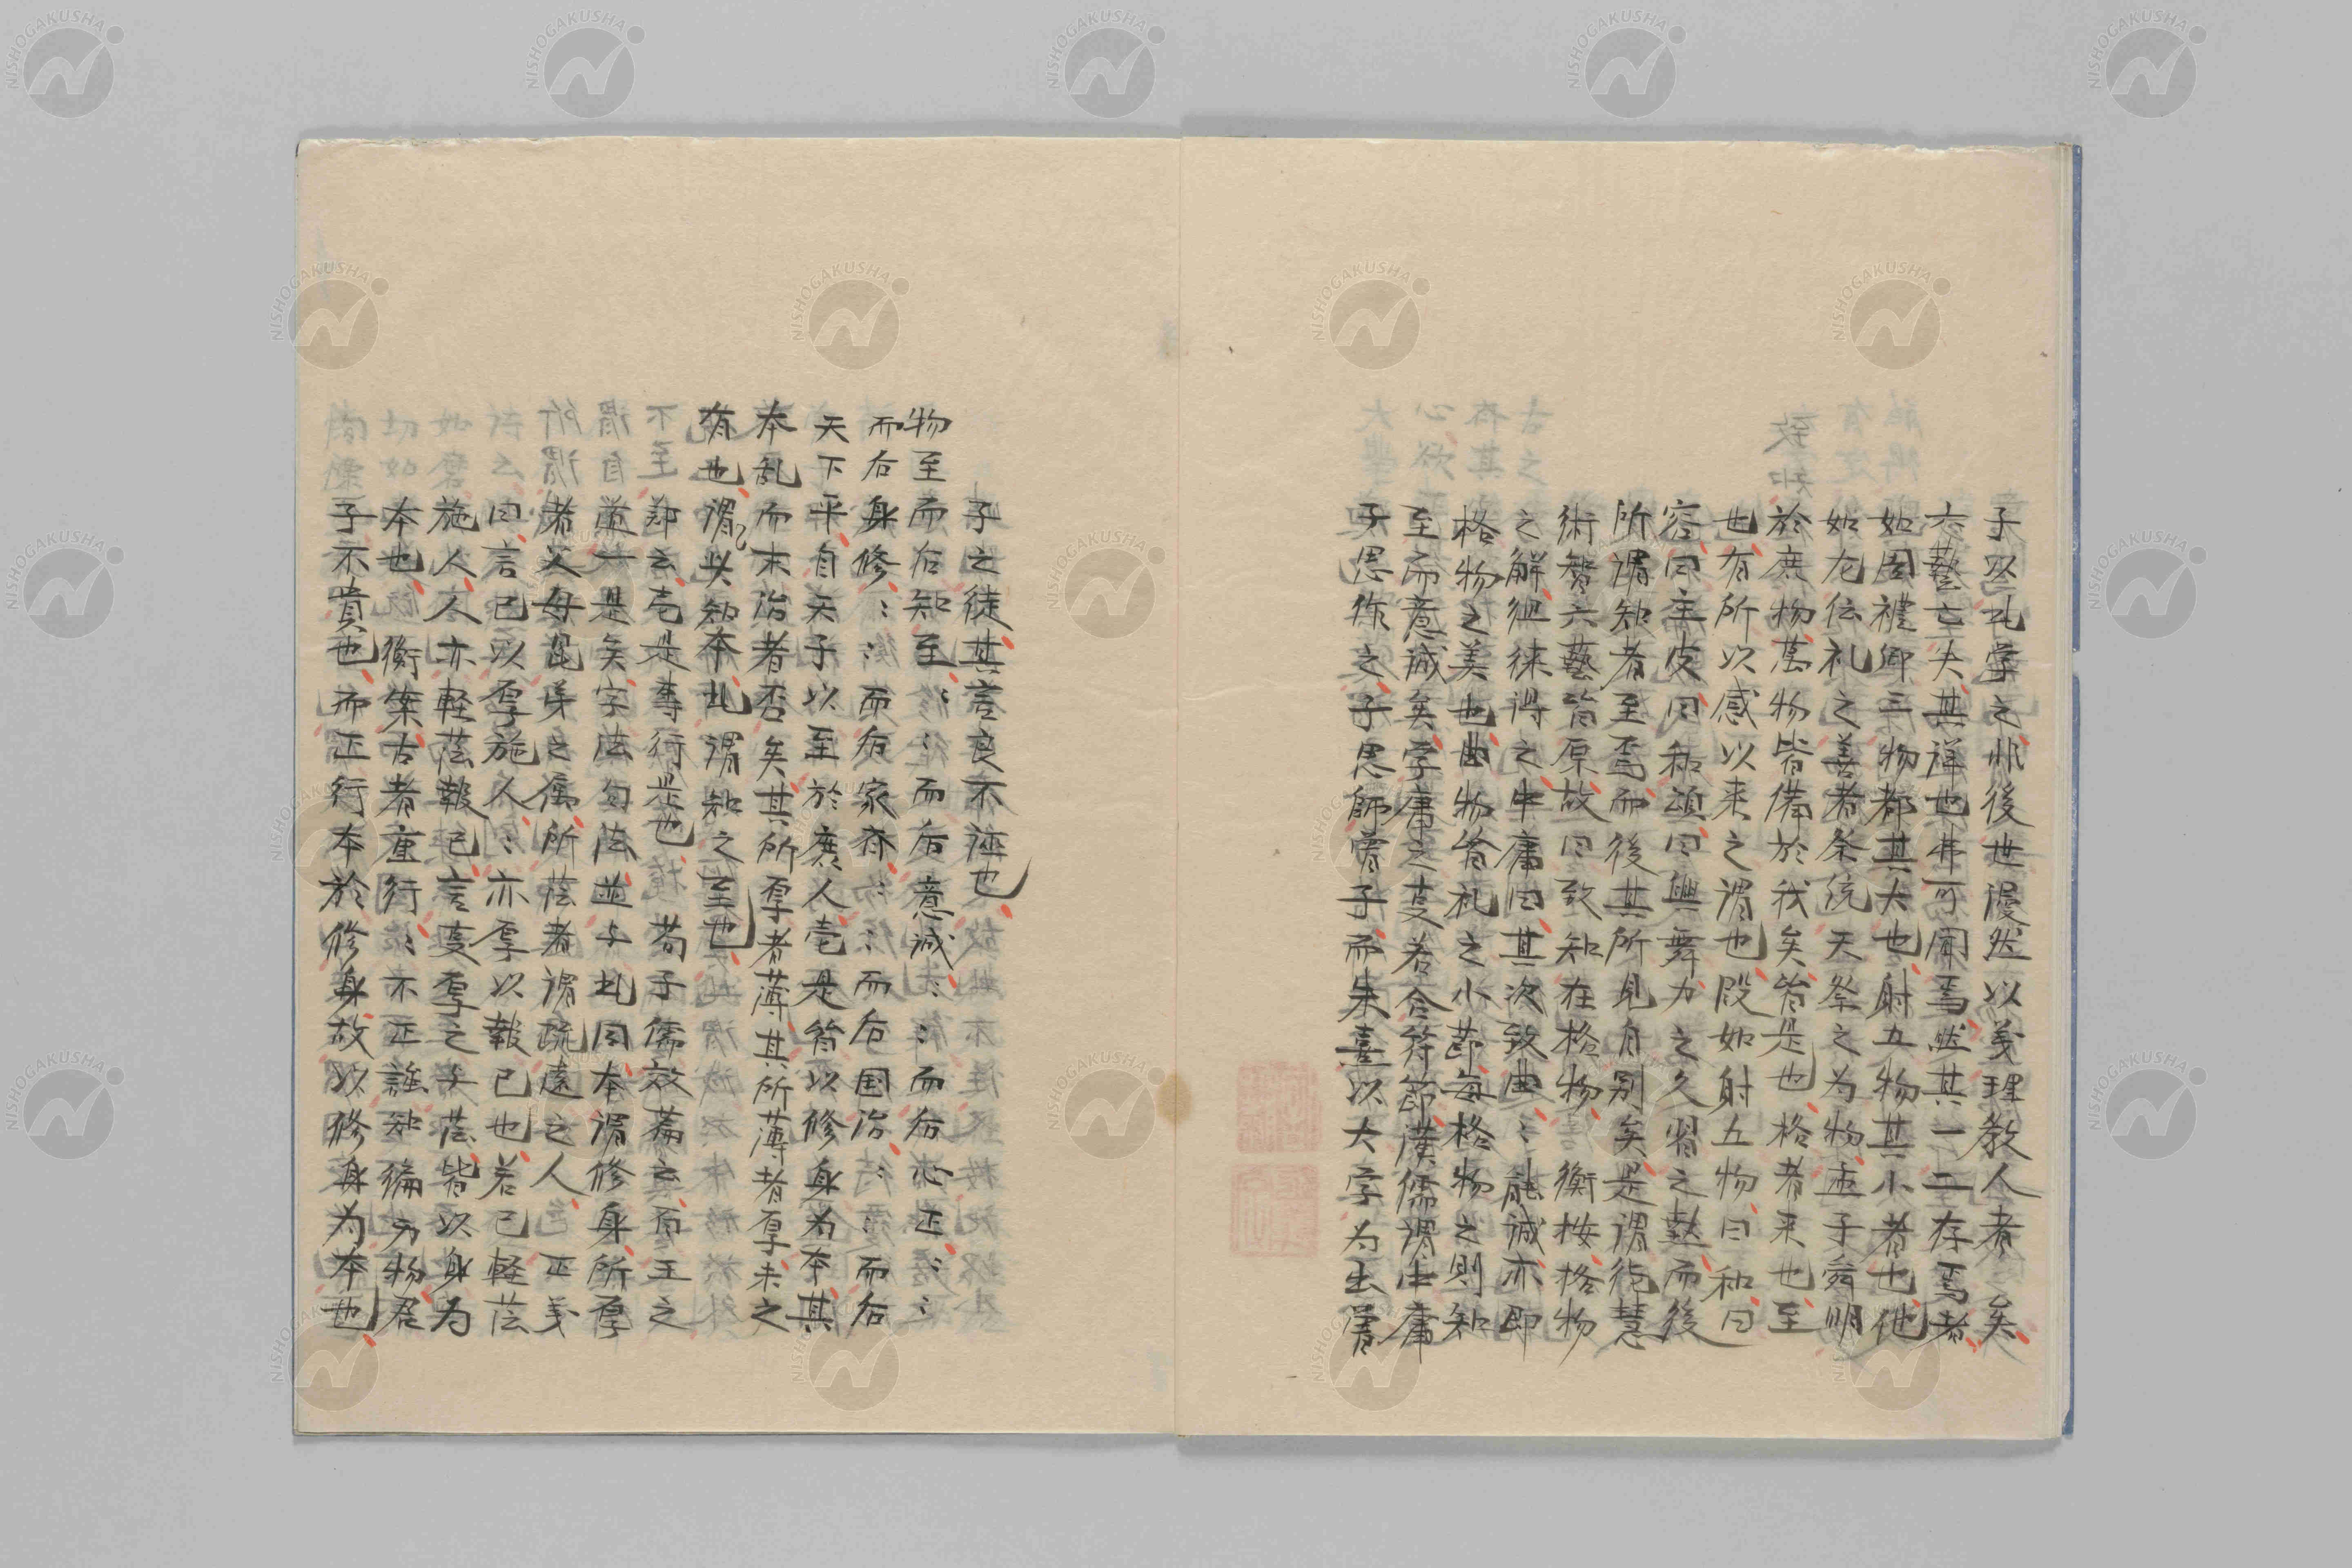 子以此学之非後世謾然以義理教人者矣
六藝亡失其詳也弗可聞焉然其一二存焉者
如周禮卿三物都其大也射五物其小者也他
如左伝礼之善者祭統天祭之为物孟子舜明
於庶物萬物皆備於我矣皆是也格者来也至
也有所以感以来之謂也段如射五物曰和曰
容曰主皮曰和頌曰興舞力之久習之熟而後
所謂知者至焉而後其所見自別矣是謂徳慧
術智六藝皆原故曰致知在格物衡按格物
之解従徠得之中庸曰其次致曲〻能誠亦即
格物之美也曲物皆礼之小節每格物之則知
至而意誠矣学庸之㫖若合符節漢儒謂中庸
子思作之子思師曽子而朱熹以大学为出曽
子之徒其言良不誣也
物至而后知至〻〻而后意誠〻〻而后心正〻〻
而后身修〻〻而后家斉〻〻而后国治〻〻而后
天下平自天子以至於庶人壱是皆以修身为本其
本乱而末治者否矣其所厚者薄其所薄者厚未之
有也謂以知本此謂知之至也
鄭云壱是専行是也 荀子儒效篇云而王之
道一是矣字法句法並与此同本謂修身所厚
者父母昆弟之属所薄者謂疏遠之人 正義
曰言己以厚施人〻亦厚以報己也若己軽薄
施人人亦軽薄報己言㫖厚之与薄皆以身为
本也 衡案古者重行〻不正雖知徧万物君
子不貴也而正行本於修身故以修身为本也